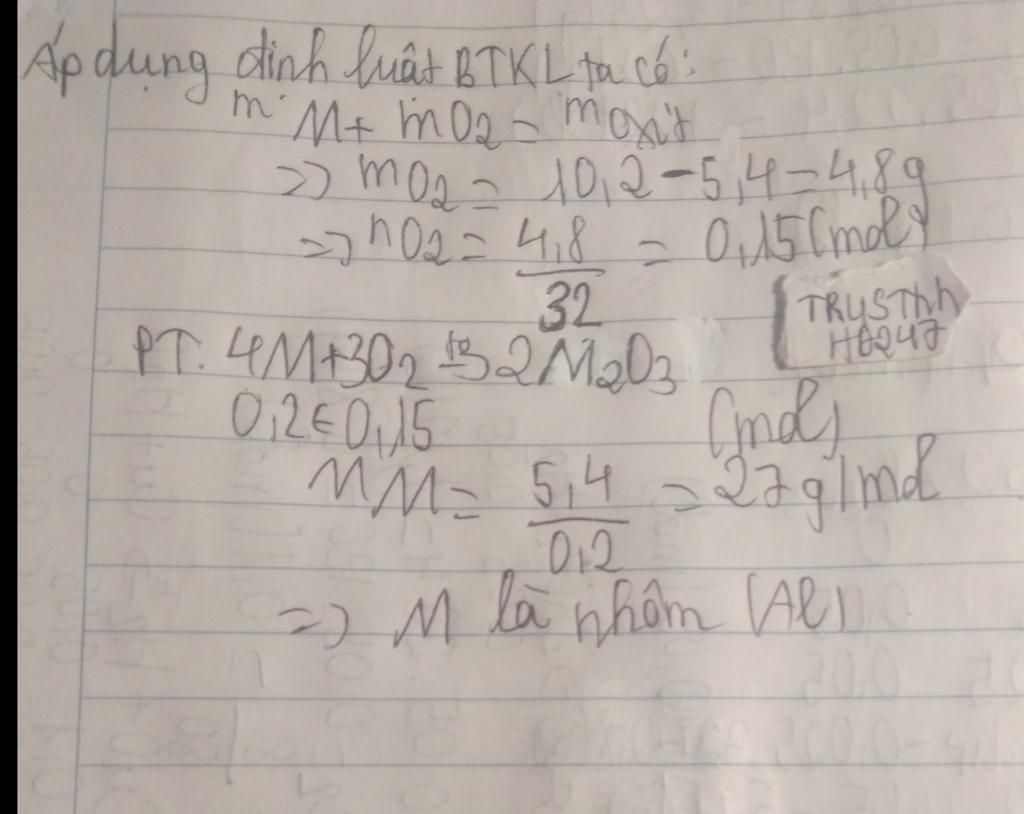 Áp dụng định luật BTKL ta có:
mM + mO2 = moxit
=> mO2 = 10,2 - 5,4 = 4,8g
=> nO2 = 4,8/32 = 0,15 (mol)
TRYSThh
H0247
PT: 4M + 3O2 t°→ 2M2O3
0,2 ← 0,15 (mol)
MM = 5,4/0,2 = 27g/mol
=> M là nhôm (Al)